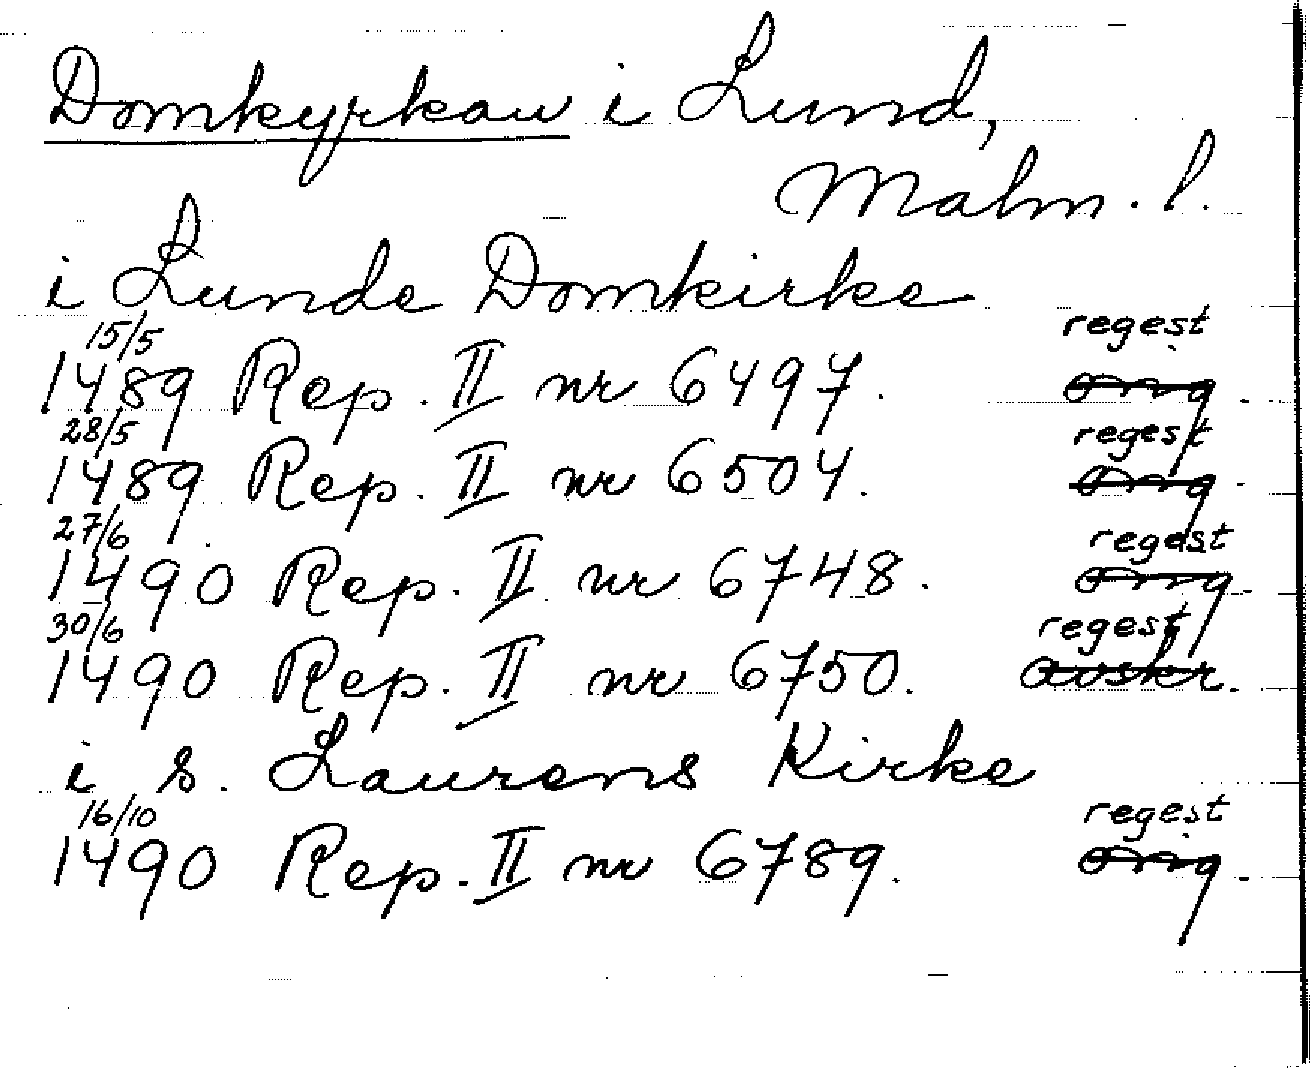 Domkyrkan i Lund,
Malm. l.
i Lunde Domkirke
15/5 regest
1489 Rep. II nr 6497. orig.
28/5 regest
1489 Rep. II nr 6504. orig.
27/6 regest
1490 Rep. II nr 6748. orig.
30/6 regest
1490 Rep. II nr 6750. avskr.
i s. Laurens Kirke
16/10 regest
1490 Rep. II nr 6789. orig.